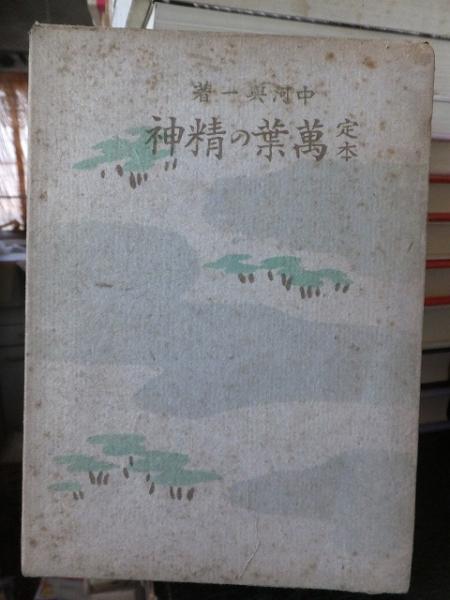 中河與一著
定本
萬葉の精神